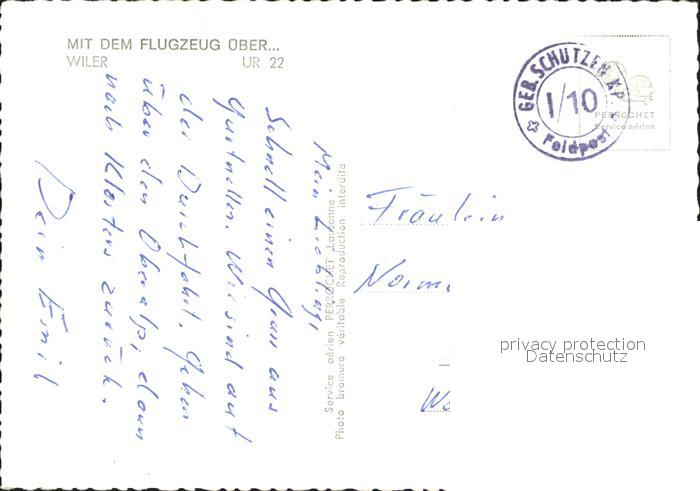 MIT DEM FLUGZEUG ÜBER...
WILER UR 22
Mein Liebling,
Schnell einen Gruss aus
Gurtnellen. Wir sind auf
der Durchfahrt. Gehen
über den Oberalp, dann
nach Klosters zurück.
Dein Emil
Service aérien PERROCHET Lausanne
Photo bromure véritable Reproduction interdite
GEB. SCHÜTZEN KP.
I/10
Feldpost
PERROCHET
Service aérien
Fräulein
privacy protection
Datenschutz